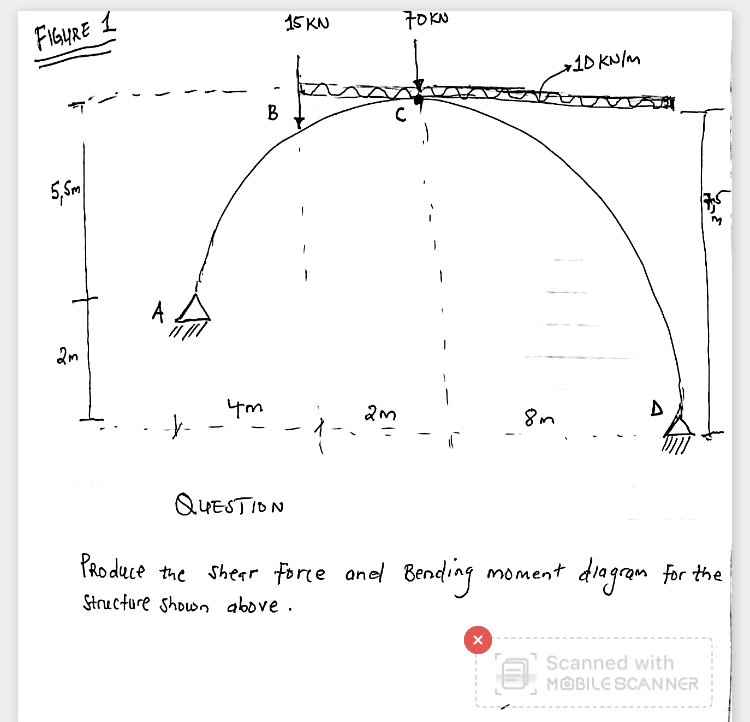 FIGURE 1
15 KN
70 KN
10 KN/m
B
C
5,5m
7,5
m
A
2m
4m
2m
8m
D
QUESTION
Produce the shear force and Bending moment diagram for the
structure shown above.
Scanned with
MOBILE SCANNER